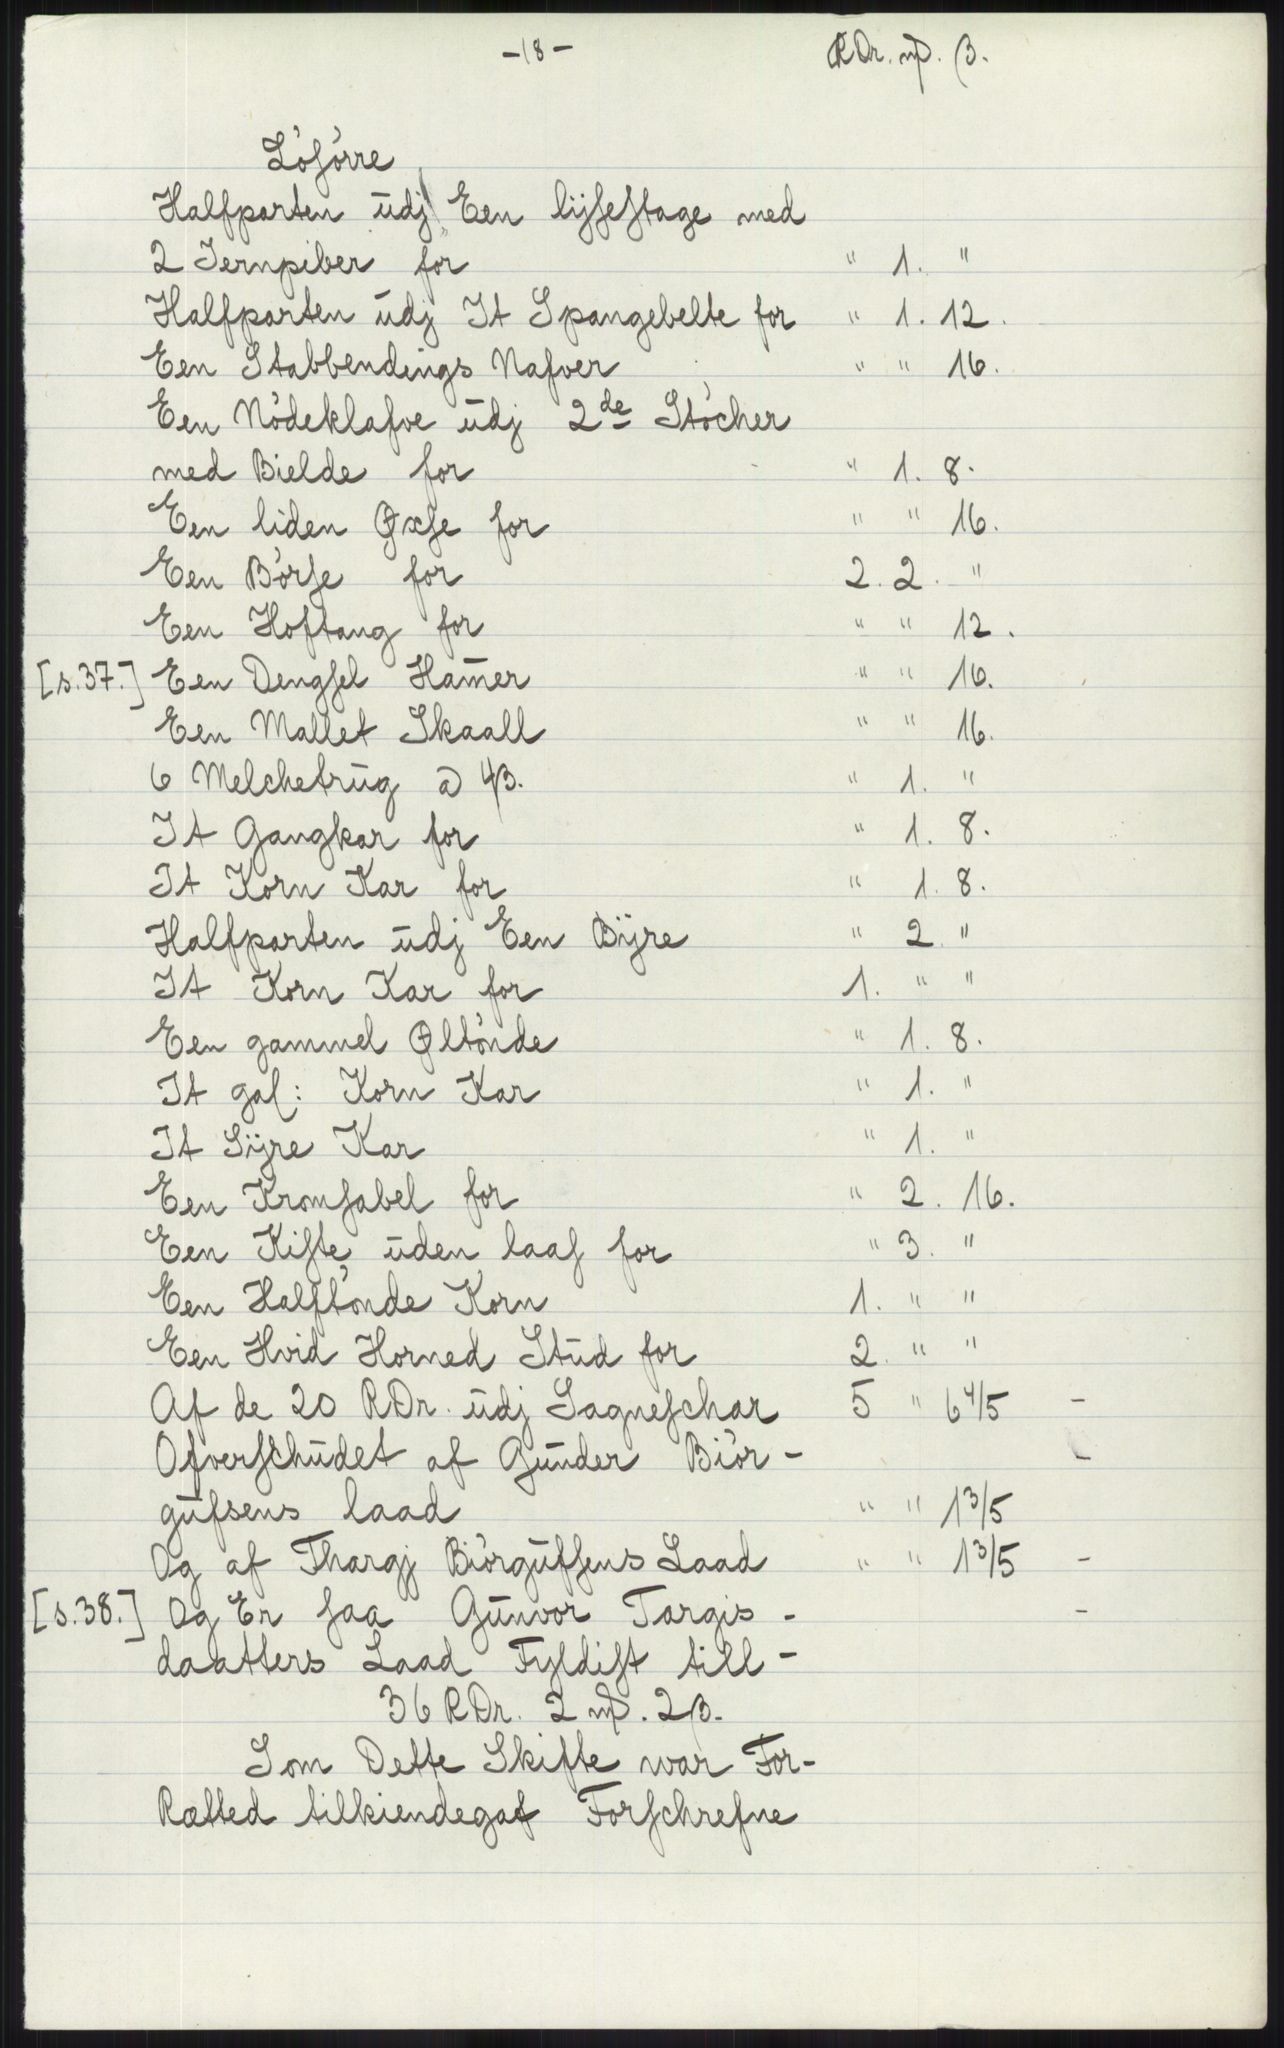 -18- RDr. mƿ. β.
Lösörre
Halfparten udj Een lijsestage med
2 Jernpiber for " 1. "
Halfparten udj It Spangebelte for " 1. 12.
Een Stabbendings Nafver " " 16.
Een Nödeklafve udj 2de Stöcher
med Bielde for " 1. 8.
Een liden Øxse for " " 16.
Een Börse for 2. 2. "
Een Hoftang for " " 12.
[s.37.] Een Dengsel Ham̄er " " 16.
Een Mallet Skaall " " 16.
6 Melchetrug a 4β. " 1. "
It Gangkar for " 1. 8.
It Korn Kar for " 1. 8.
Halfparten udj Een Bijre " 2. "
It Korn Kar for 1. " "
Een gammel Øltönde " 1. 8.
It gal: Korn Kar " 1. "
It Sijre Kar " 1. "
Een Kromsabel for " 2. 16.
Een Kiste uden laas for " 3. "
Een Halftönde Korn 1. " "
Een Hvid Horned Stud for 2. " "
Af de 20 RDr. udj Sagneschar 5 " 6 4/5 -
Ofverschudet af Gunder Biör-
gufsens laad " " 1 3/5
Og af Thargj Biörgufsens Laad " " 1 3/5 -
[s.38.] Og Er saa Gunvor Targis- -
daatters Laad Fyldist till-
36 RDr. 2 mƿ. 2β.
Som Dette Skifte war For-
Rætted tilkiendegaf Forschrefne